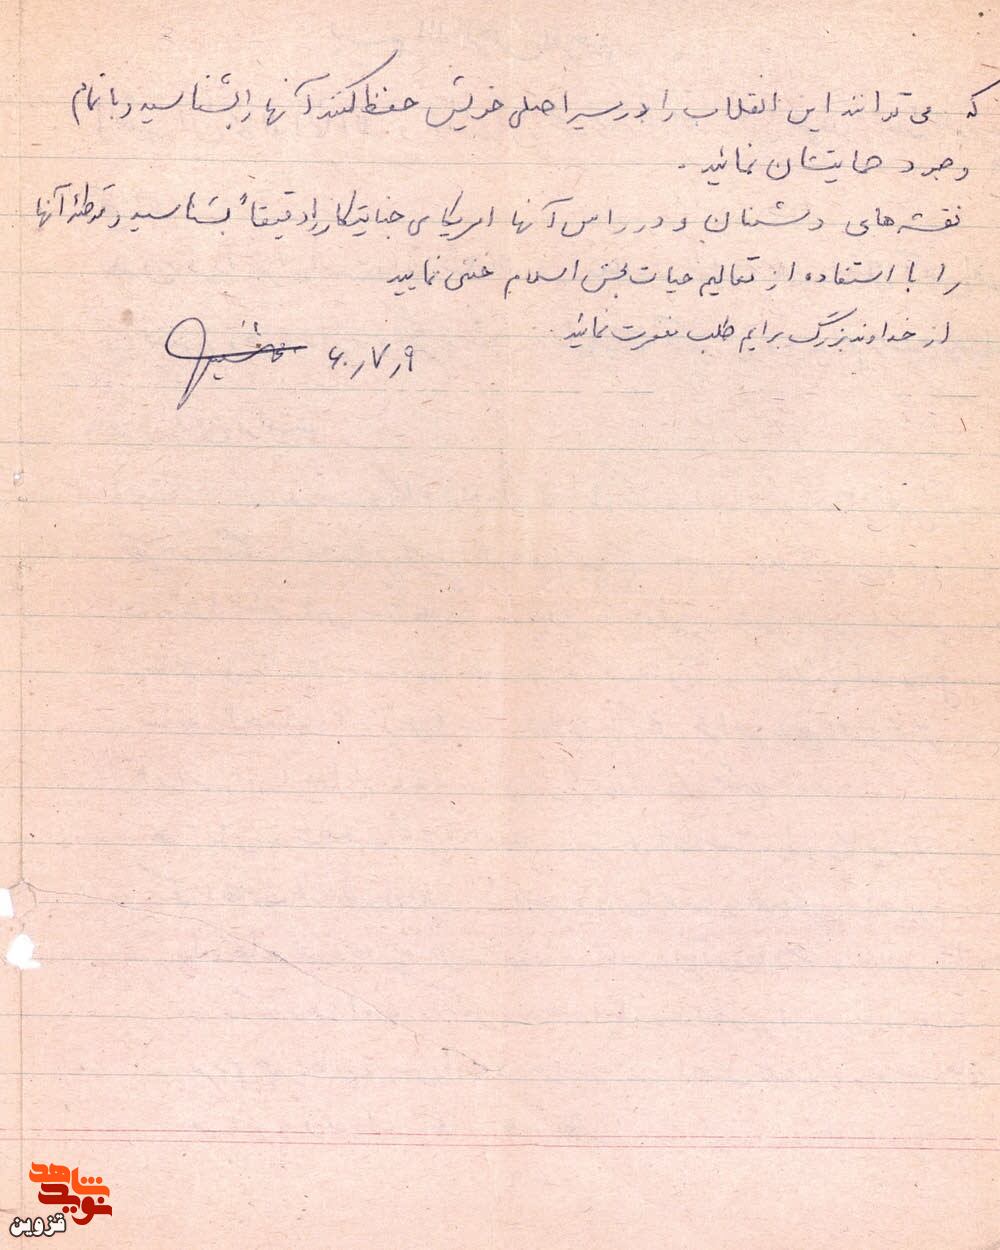 که می توانند این انقلاب را در سیر اصلی خویش حفظ کنند آنها را بشناسید و با تمام
وجود حمایتشان نمائید.
نقشه های دشمنان و در راس آنها امریکای جنایتکار را دقیقاً بشناسید و توطئه آنها
را با استفاده از تعالیم حیات بخش اسلام خنثی نمایید
از خداوند بزرگ برایم طلب مغفرت نمائید
۶۰٫۷٫۹
نوید شاهد
قزوین